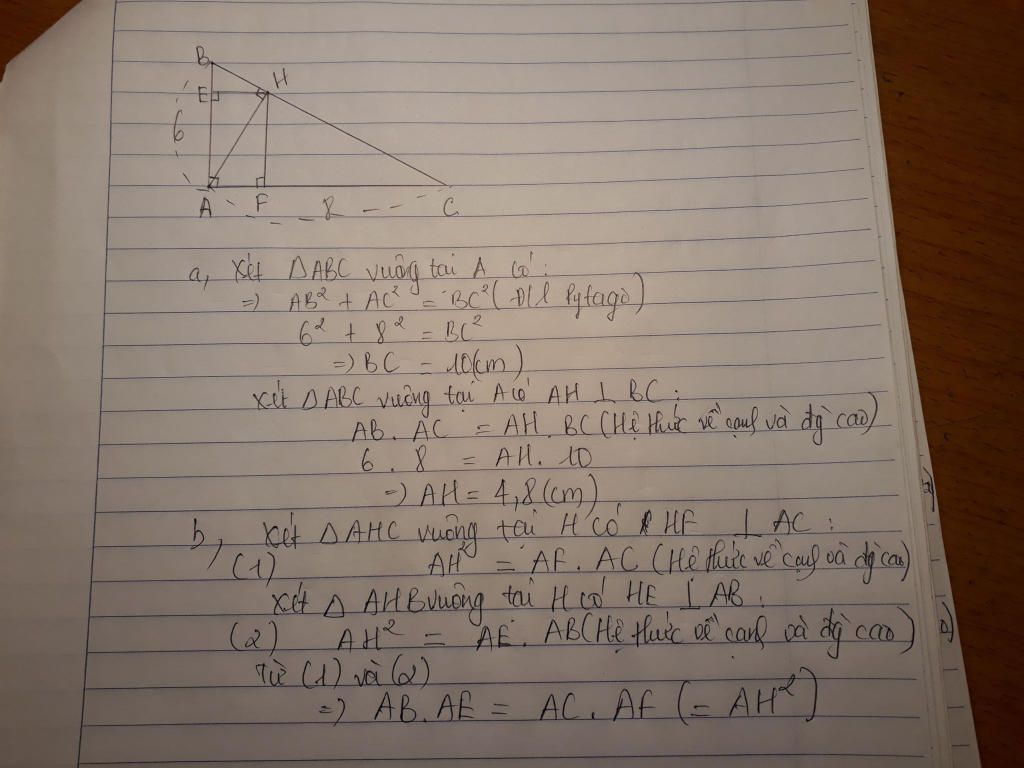 B
H
E
6
A F 8 C
a, Xét ΔABC vuông tại A có:
=> AB² + AC² = BC² (Đ/l Pytago)
6² + 8² = BC²
=> BC = 10(cm)
Xét ΔABC vuông tại A có AH ⊥ BC:
AB. AC = AH. BC (Hệ thức về cạnh và đg cao)
6 . 8 = AH. 10
=> AH = 4,8 (cm)
b, Xét ΔAHC vuông tại H có HF ⊥ AC:
(1) AH² = AF. AC (Hệ thức về cạnh và đg cao)
Xét Δ AHB vuông tại H có HE ⊥ AB:
(2) AH² = AE. AB (Hệ thức về cạnh và đg cao)
Từ (1) và (2)
=> AB. AE = AC. AF (= AH²)